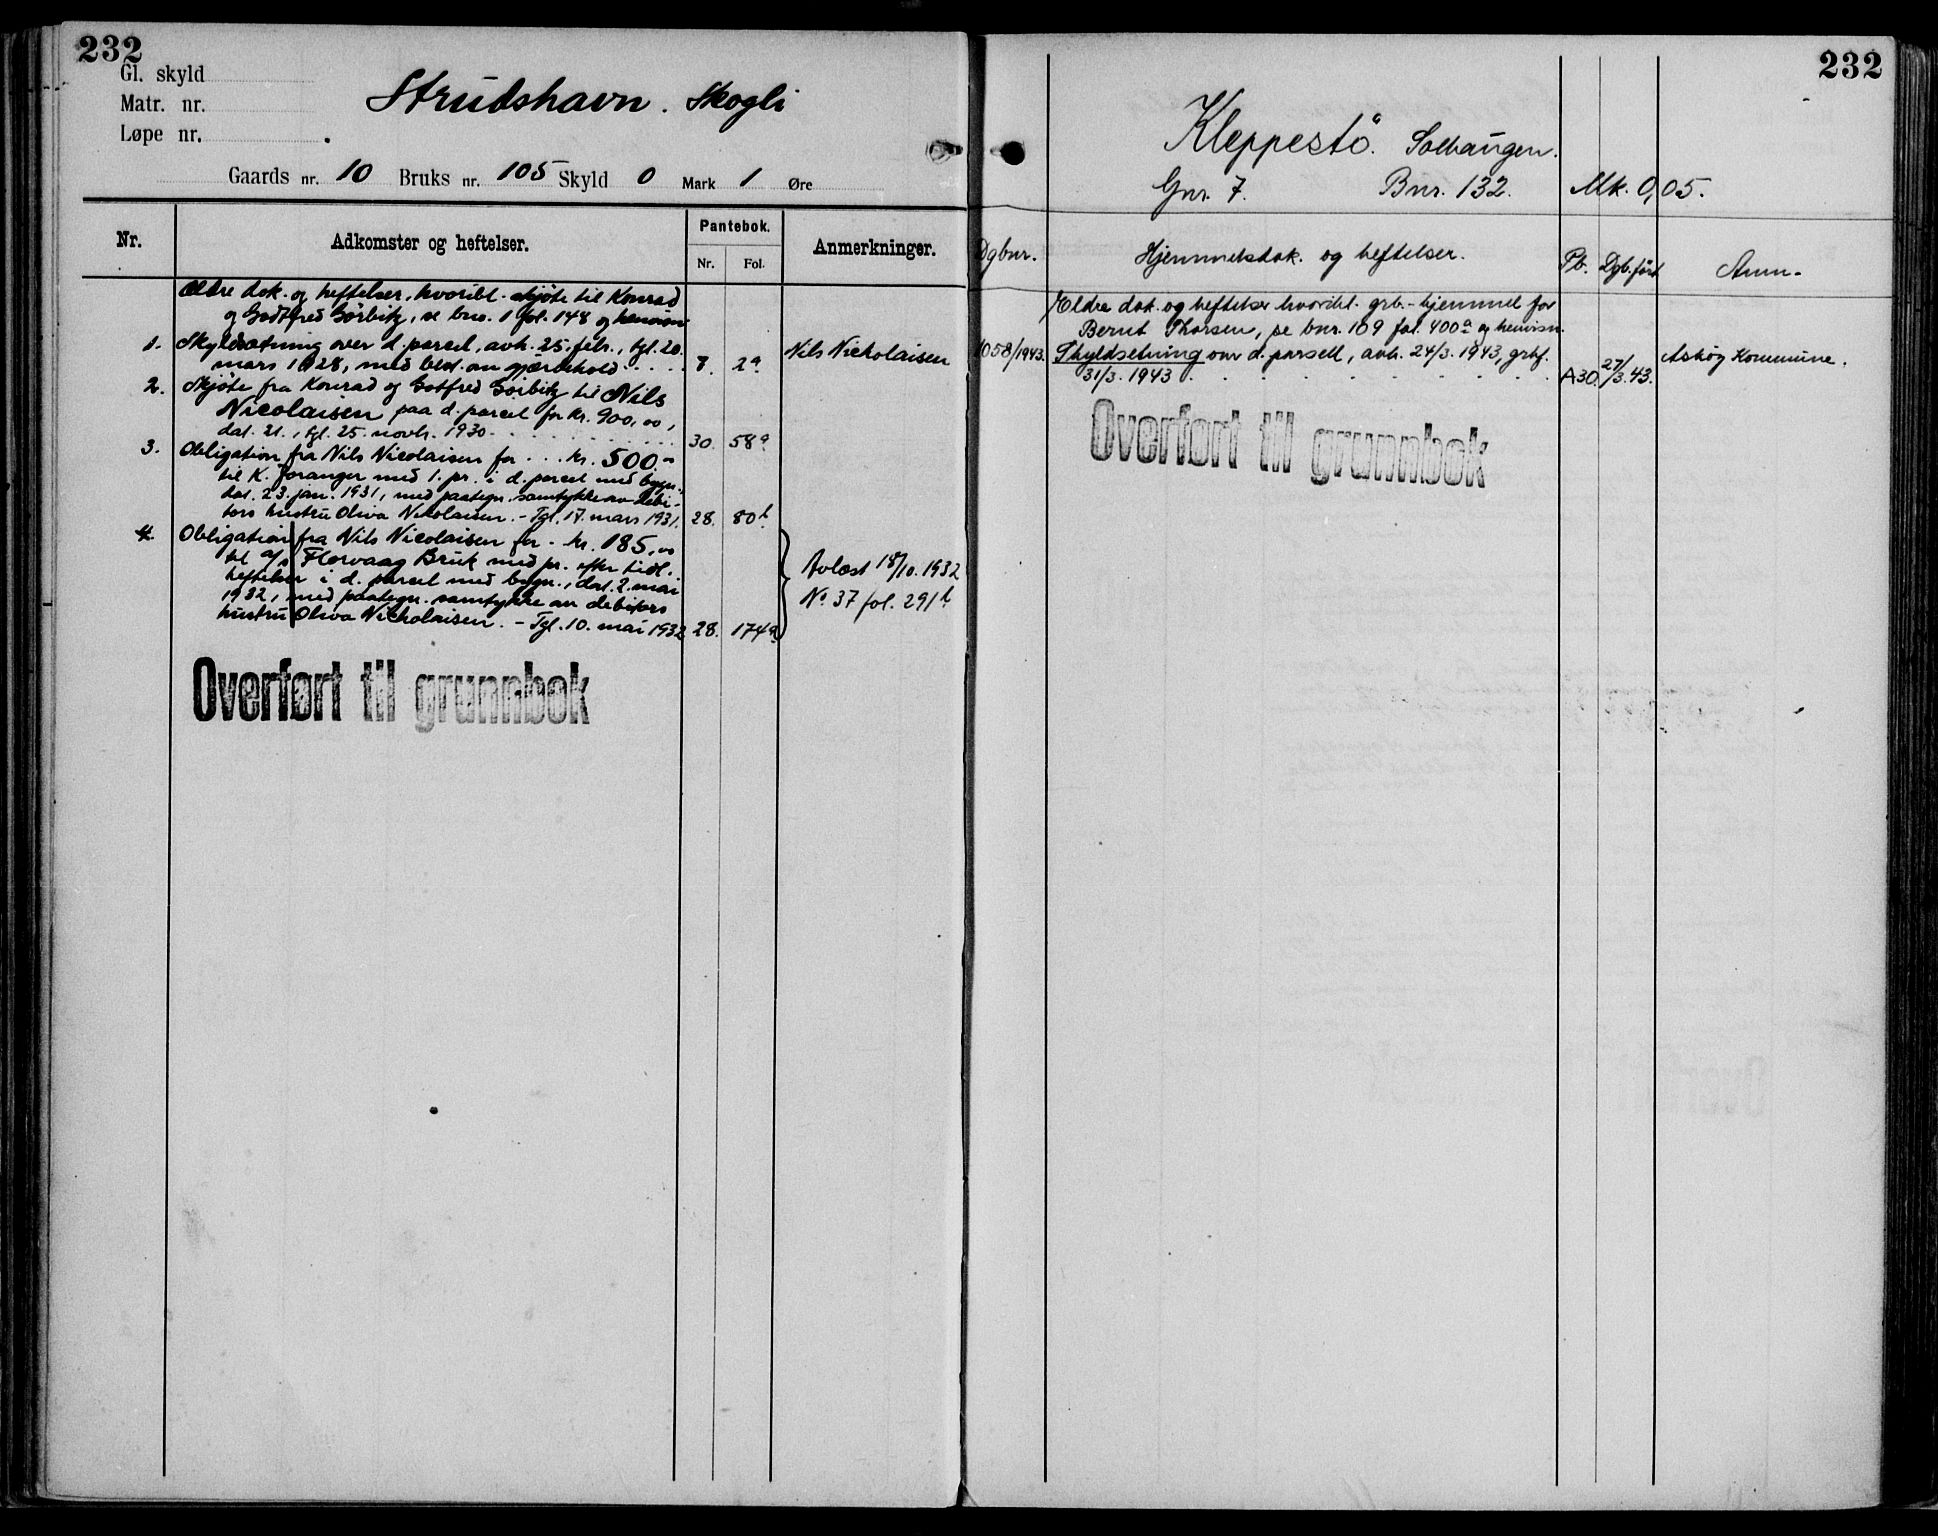 232
Gl. skyld
Matr. nr.
Løpe nr.
Strudshavn. Skogli
Gaards nr. 10 Bruks nr. 105 Skyld 0 Mark 1 Øre
Nr.
Adkomster og heftelser.
Pantebok.
Nr. Fol.
Anmerkninger.
Ældre dok. og heftelser, hvoribl. skjöte til Konrad
og Godtfred Görbitz, se bno. 1 fol. 148 og henvisn
1. Skyldsætning over d. parcel, avh. 25. febr., tgl. 20.
mars 1928, med best. om gjærdehold..... 8. 2a Nils Nickolaisen
2. Skjöte fra Konrad og Gotfred Görbitz til Nils
Nicolaisen paa d. parcel for kr. 900,00,
dat. 21., tgl. 25. novbr. 1930. 30. 58a
3. Obligation fra Nils Nicolaisen for ... kr. 500.00
til K. Joranger med 1. pr. i d. parcel med bygn.,
dat. 23. jan. 1931, med paategn. samtykke av debi-
tors hustru Oliva Nikolaisen. - Tgl. 17. mars 1931. 28. 80b
4. Obligation fra Nils Nicolaisen for - kr. 185,00
til a/s Florvaag Bruk med pr. efter tidl.
heftelser i d. parcel med bygn., dat. 2. mai
1932, med paategn. samtykke av debitors
hustru Oliva Nicholaisen. - Tgl. 10. mai 1932 28. 174a
Avlæst 18/10. 1932
No 37 fol. 291b
Overført til grunnbok
232
Kleppestö. Solhaugen.
Gnr. 7. Bnr. 132. Mk. 0,05.
Dgbnr.
Hjemmelsdok. og heftelser.
Pb. Dgb.ført Anm.
Eldre dok. og heftelser hvoribl. grb.-hjemmel for
Bernt Thorsen, se bnr. 109 fol. 400a og henvisn.
1058/1943. Skyldsetning over d. parsell, avh. 24/3. 1943, grbf.
31/3. 1943 . . . . . . . . A30. 27/3.43. Askøy Kommune.
Overført til grunnbok